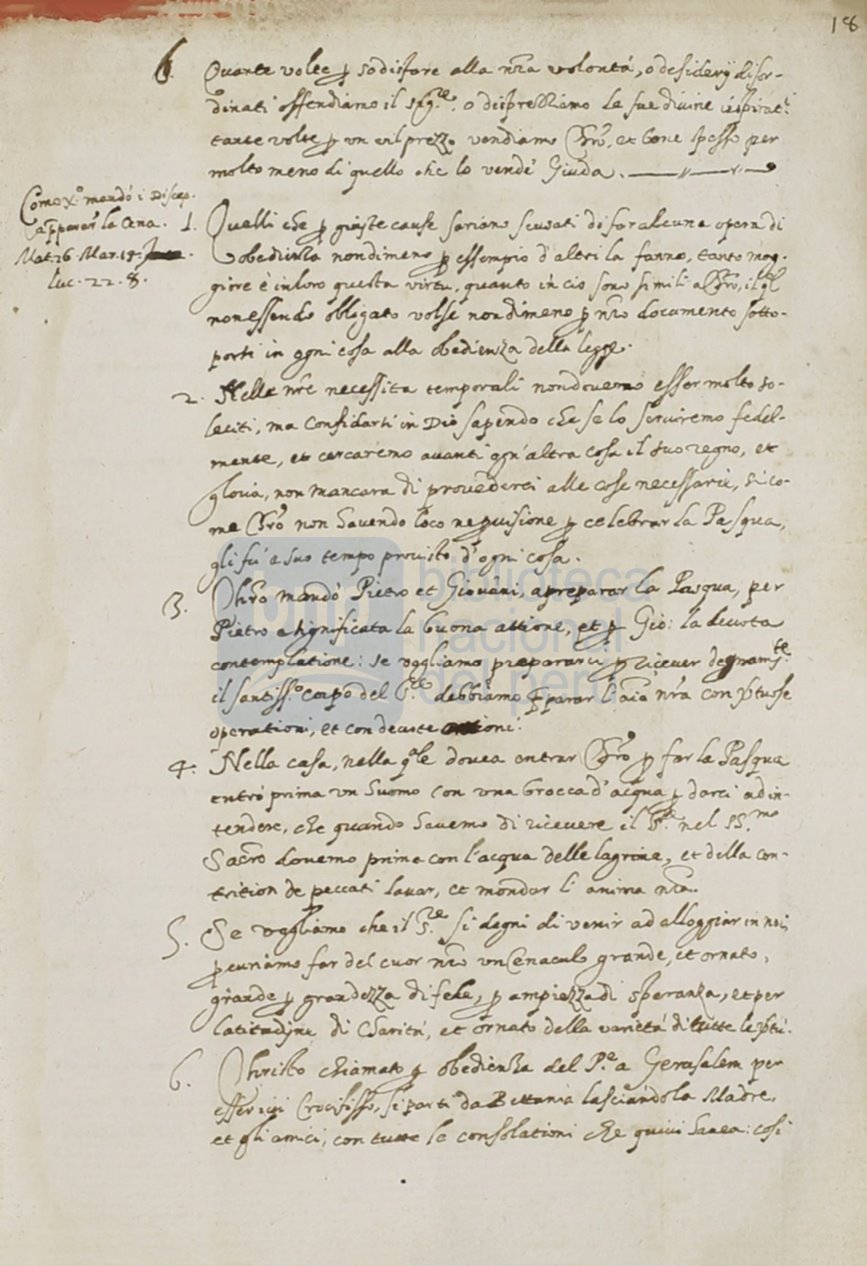 18
6. Quante volte ꝑ sodisfare alla nr̃a volontá, o desiderij disor-
dinati offendiamo il Sigre. o disprezziamo le sue divine inspirati.
tante volte ꝑ un vil prezzo vendiamo Chr̃o, et bene spesso per
molto meno di quello che lo vendé Giuda.
Como Xo. mandó i Discep.
apparar la Cena.
Mat. 26. Mar. 14.
Luc. 22. 8.
1. Quelli che ꝑ giuste cause sariano scusati di far alcuna opera di
obedienza nondimeno ꝑ essempio d'altri la fanno, tanto mag-
giore è in loro questa virtu, quanto in cio sono simili a Chr̃o, il ql
non essendo obligato volse nondimeno ꝑ nr̃o documento sotto-
porsi in ogni cosa alla obedienza della legge.
2. Nelle nr̃e necessita temporali non dovemo esser molto so-
leciti, ma confidarsi in Dio sapendo che se lo serviremo fedel-
mente, et cercaremo avanti ogn'altra cosa il suo regno, et
gloria, non mancara di provederci alle cose necessarie, si co-
me Chr̃o non havendo loco ne ꝓvisione ꝑ celebrar la Pasqua,
gli fú a suo tempo provisto d'ogni cosa.
3. Chr̃o mandó Pietro et Giovãni, a preparar la Pasqua, per
Pietro è significata la buona attione, et ꝑ Gio: la devota
contemplatione: se vogliamo prepararci ꝑ ricever degnamte.
il santisso. corpo del Sre. debbiamo ꝓparar l'aĩa nr̃a con vtuose
operationi, et con devote
4. Nella casa, nella qle dovea entrar Chr̃o ꝑ far la Pasqua
entró prima un huomo con una brocca d'acqua ꝑ darci ad in-
tendere, che quando havemo di ricevere il Sre. nel SS.mo
Sacro dovemo prima con l'acqua delle lagrime, et della con-
trition de peccati lavar, et mondar l'anima nr̃a.
5. Se vogliamo che il Sre. si degni di venir ad alloggiar in noi,
ꝓcuriamo far del cuor nr̃o un Cenaculo grande, et ornato,
grande ꝑ grandezza di fede, ꝑ ampiezza di speranza, et per
latitudine di Charitá, et ornato della varietá di tutte le vtú.
6. Christo chiamato ꝑ obedienza del Pe. a Gerusalem per
esser ivi Crocifisso, si partí da Bettania lasciando la Madre,
et gli amici, con tutte le consolationi che quivi havea: cosi
biblioteca
nacional
del perú